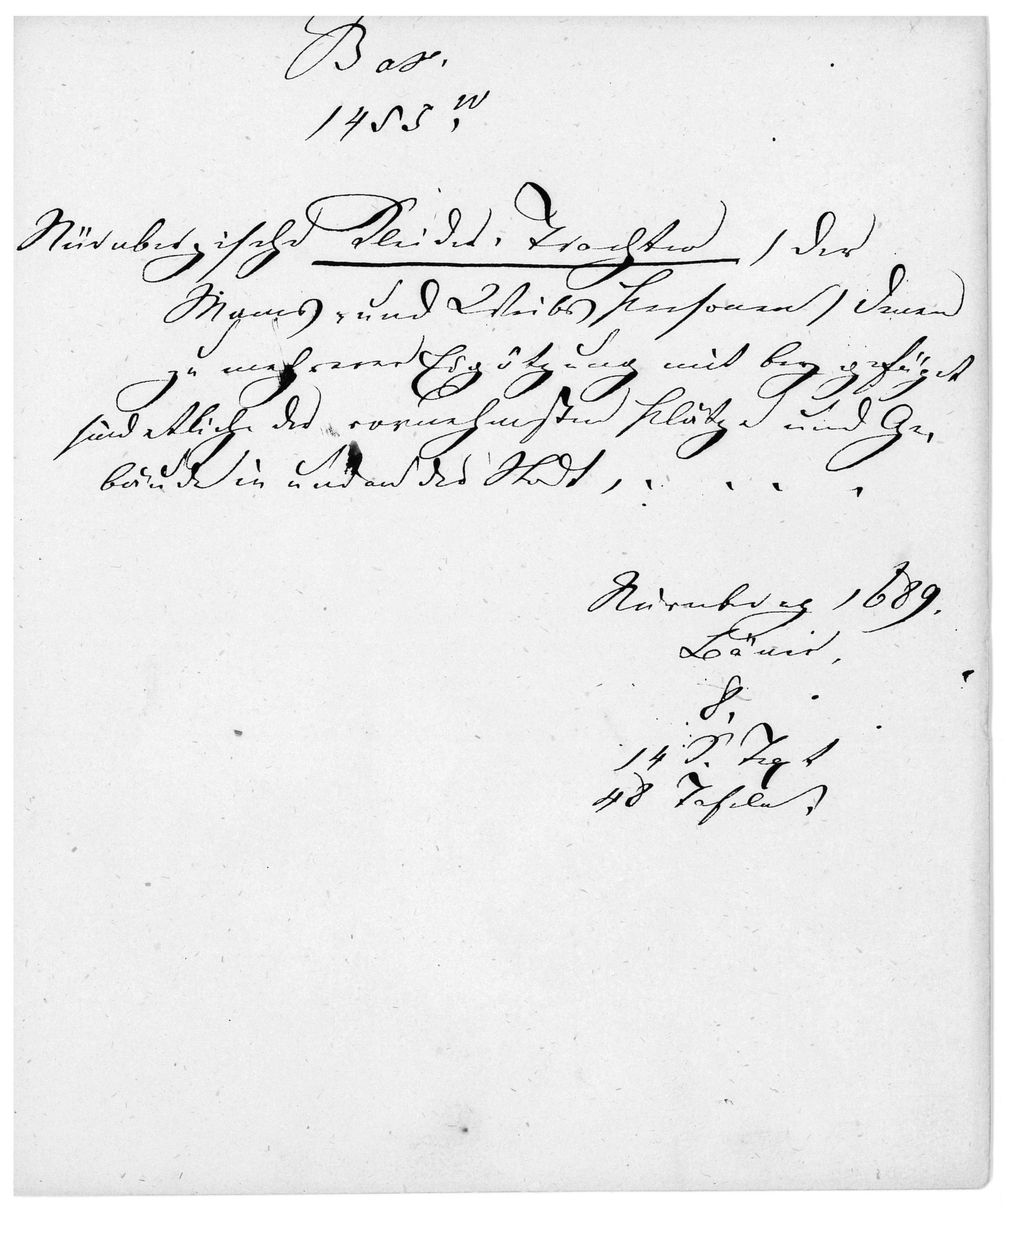 Bav.
1455 w.
Nürnbergische Kleider-Trachten, der
Manns- und Weibs Personen, denen
zu mehrerer Ergötzung mit beygefüget
sind etliche der vornehmsten Plätze und Ge-
bäude in und an der Stadt, . . . .
Nürnberg 1689.
8.
14 S. Text
48 Tafeln.